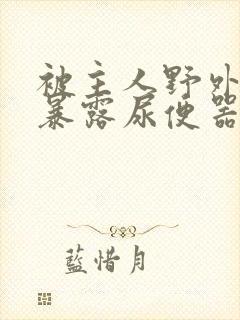 被主人野外
暴露尿便器
藍惜月